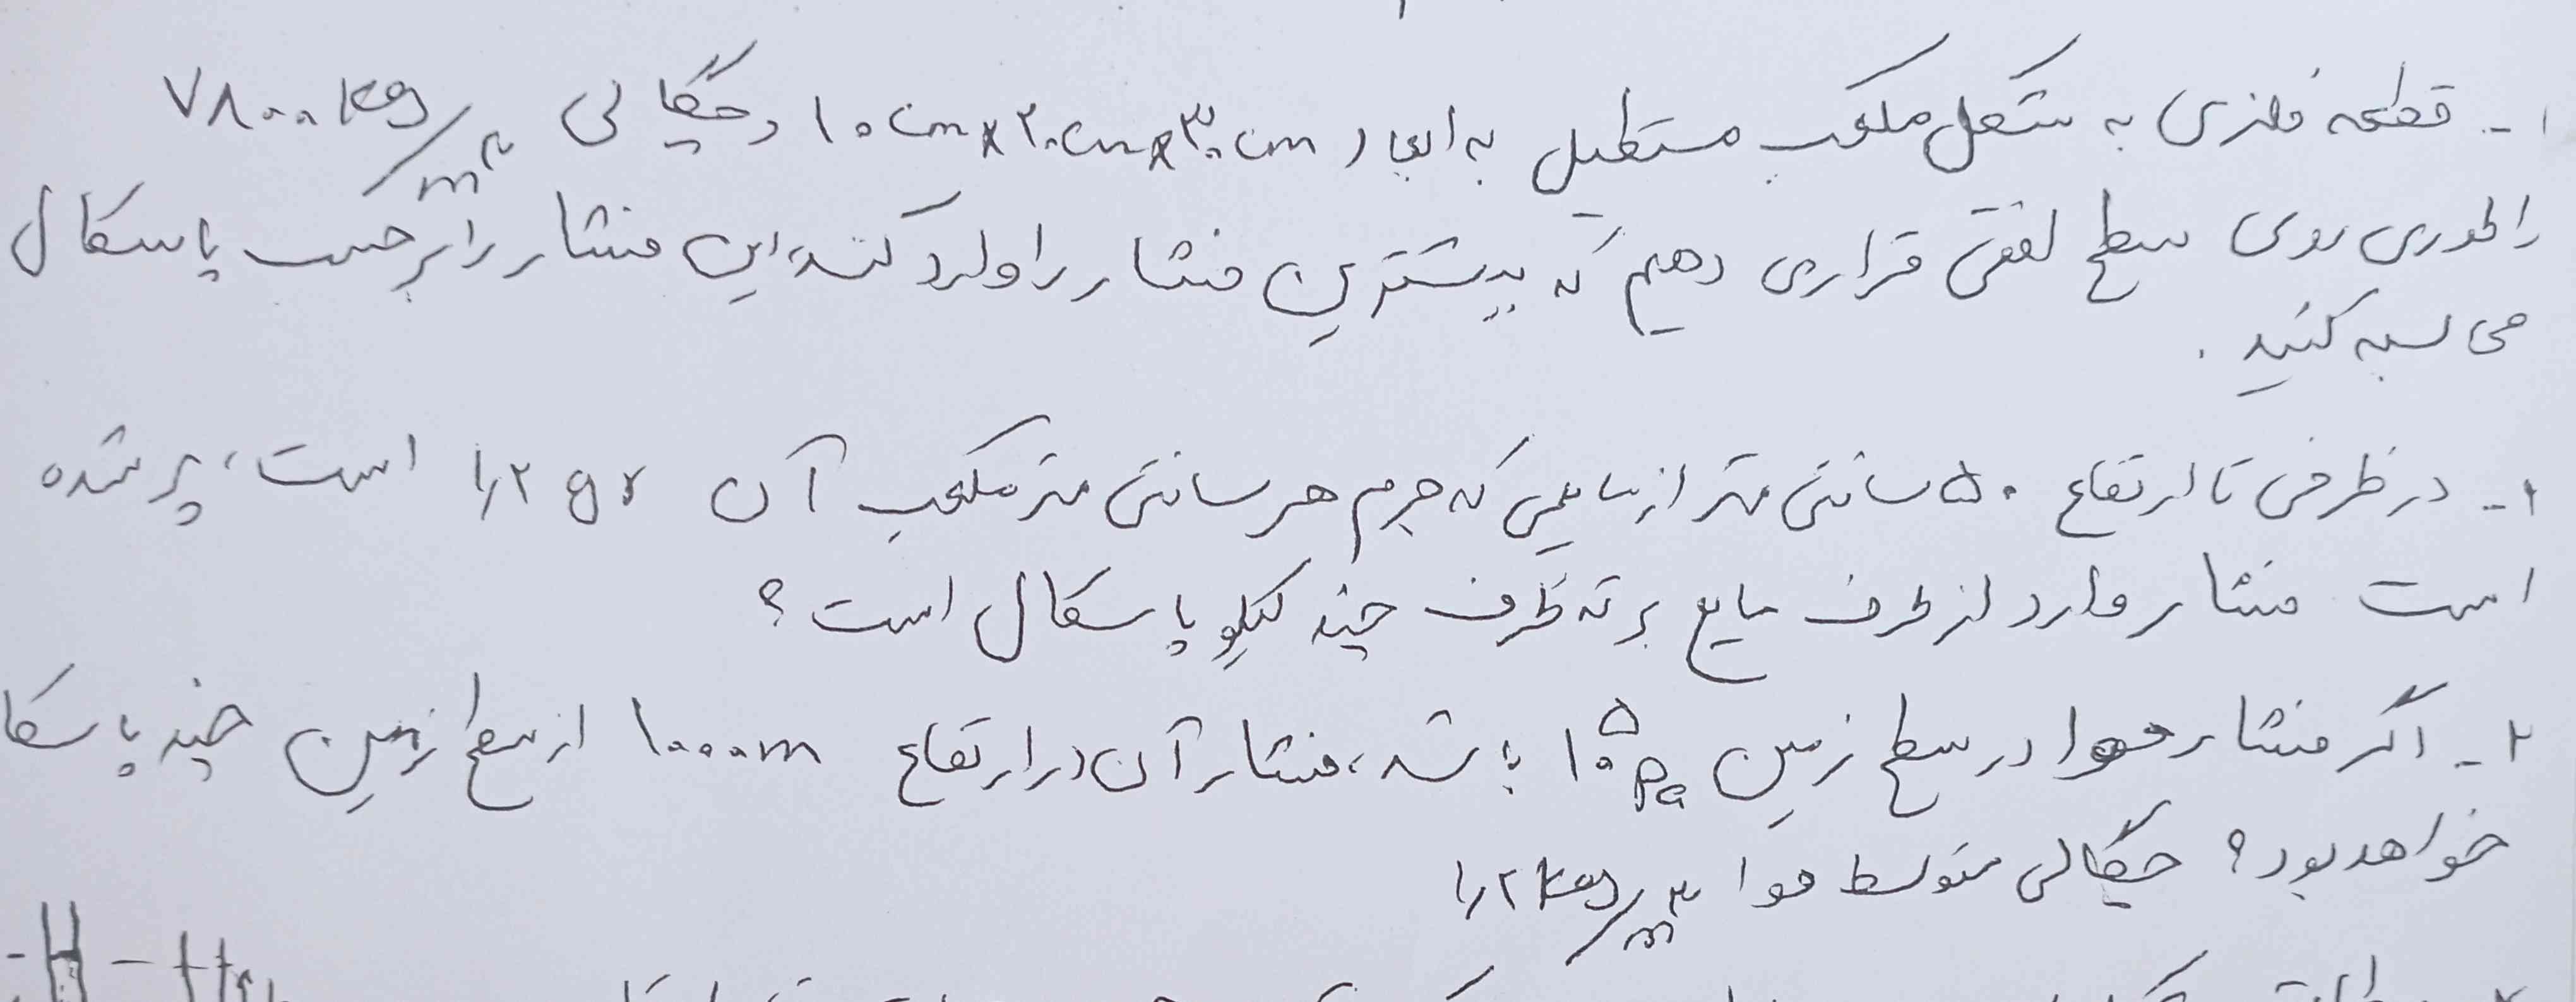 ۱- قطعه فلزی به شکل مکعب مستطیل به ابعاد ۱۰cm×۲۰cm×۳۰cm و چگالی ۷۸۰۰kg/m۳
را طوری روی سطح افقی قرار می دهیم که بیشترین فشار را وارد کند، این فشار را برحسب پاسکال
محاسبه کنید.
۱- در ظرفی تا ارتفاع ۵۰ سانتی متر از مایعی که جرم هر سانتی متر مکعب آن ۱٫۲gr است، پر شده
است فشار وارد از طرف مایع بر ته ظرف چند کیلو پاسکال است؟
۲- اگر فشار هوا در سطح زمین ۱۰⁵Pa باشد، فشار آن در ارتفاع ۱۰۰۰m از سطح زمین چند پاسکا
خواهد بود؟ چگالی متوسط هوا ۱٫۲kg/m۳